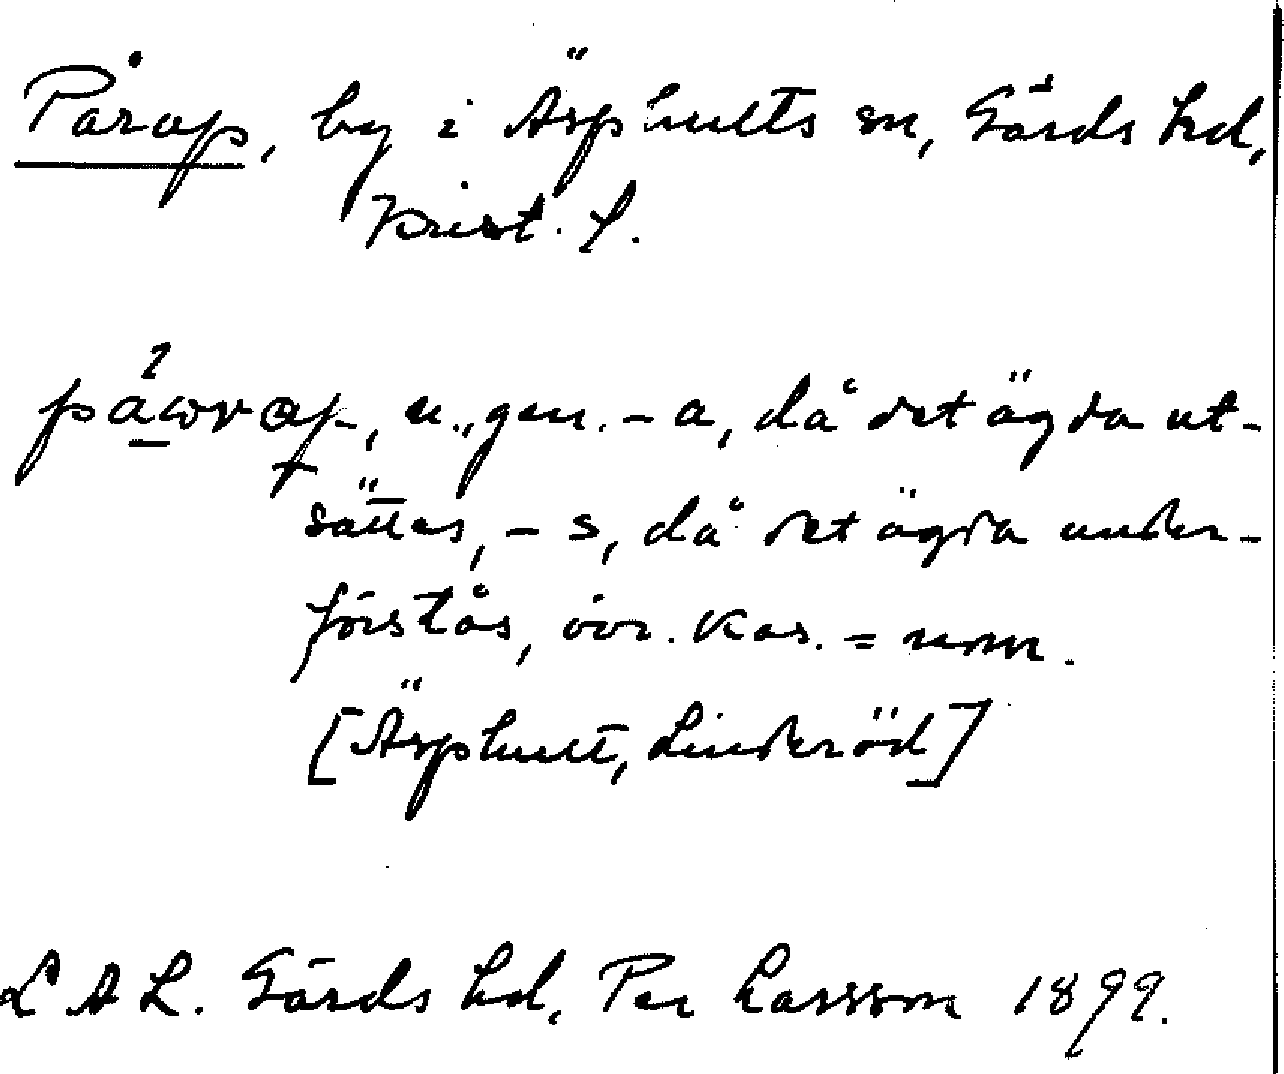 Pårap, by i Äsphults sn, Gärds hd,
Krist. l.
påwrap, n., gen. -a, då det ägda ut-
sättes, -s, då det ägda under-
förstås, övr. kas. = nom.
[Äsphult, Linderöd]
LAL. Gärds hd, Per Larsson 1899.